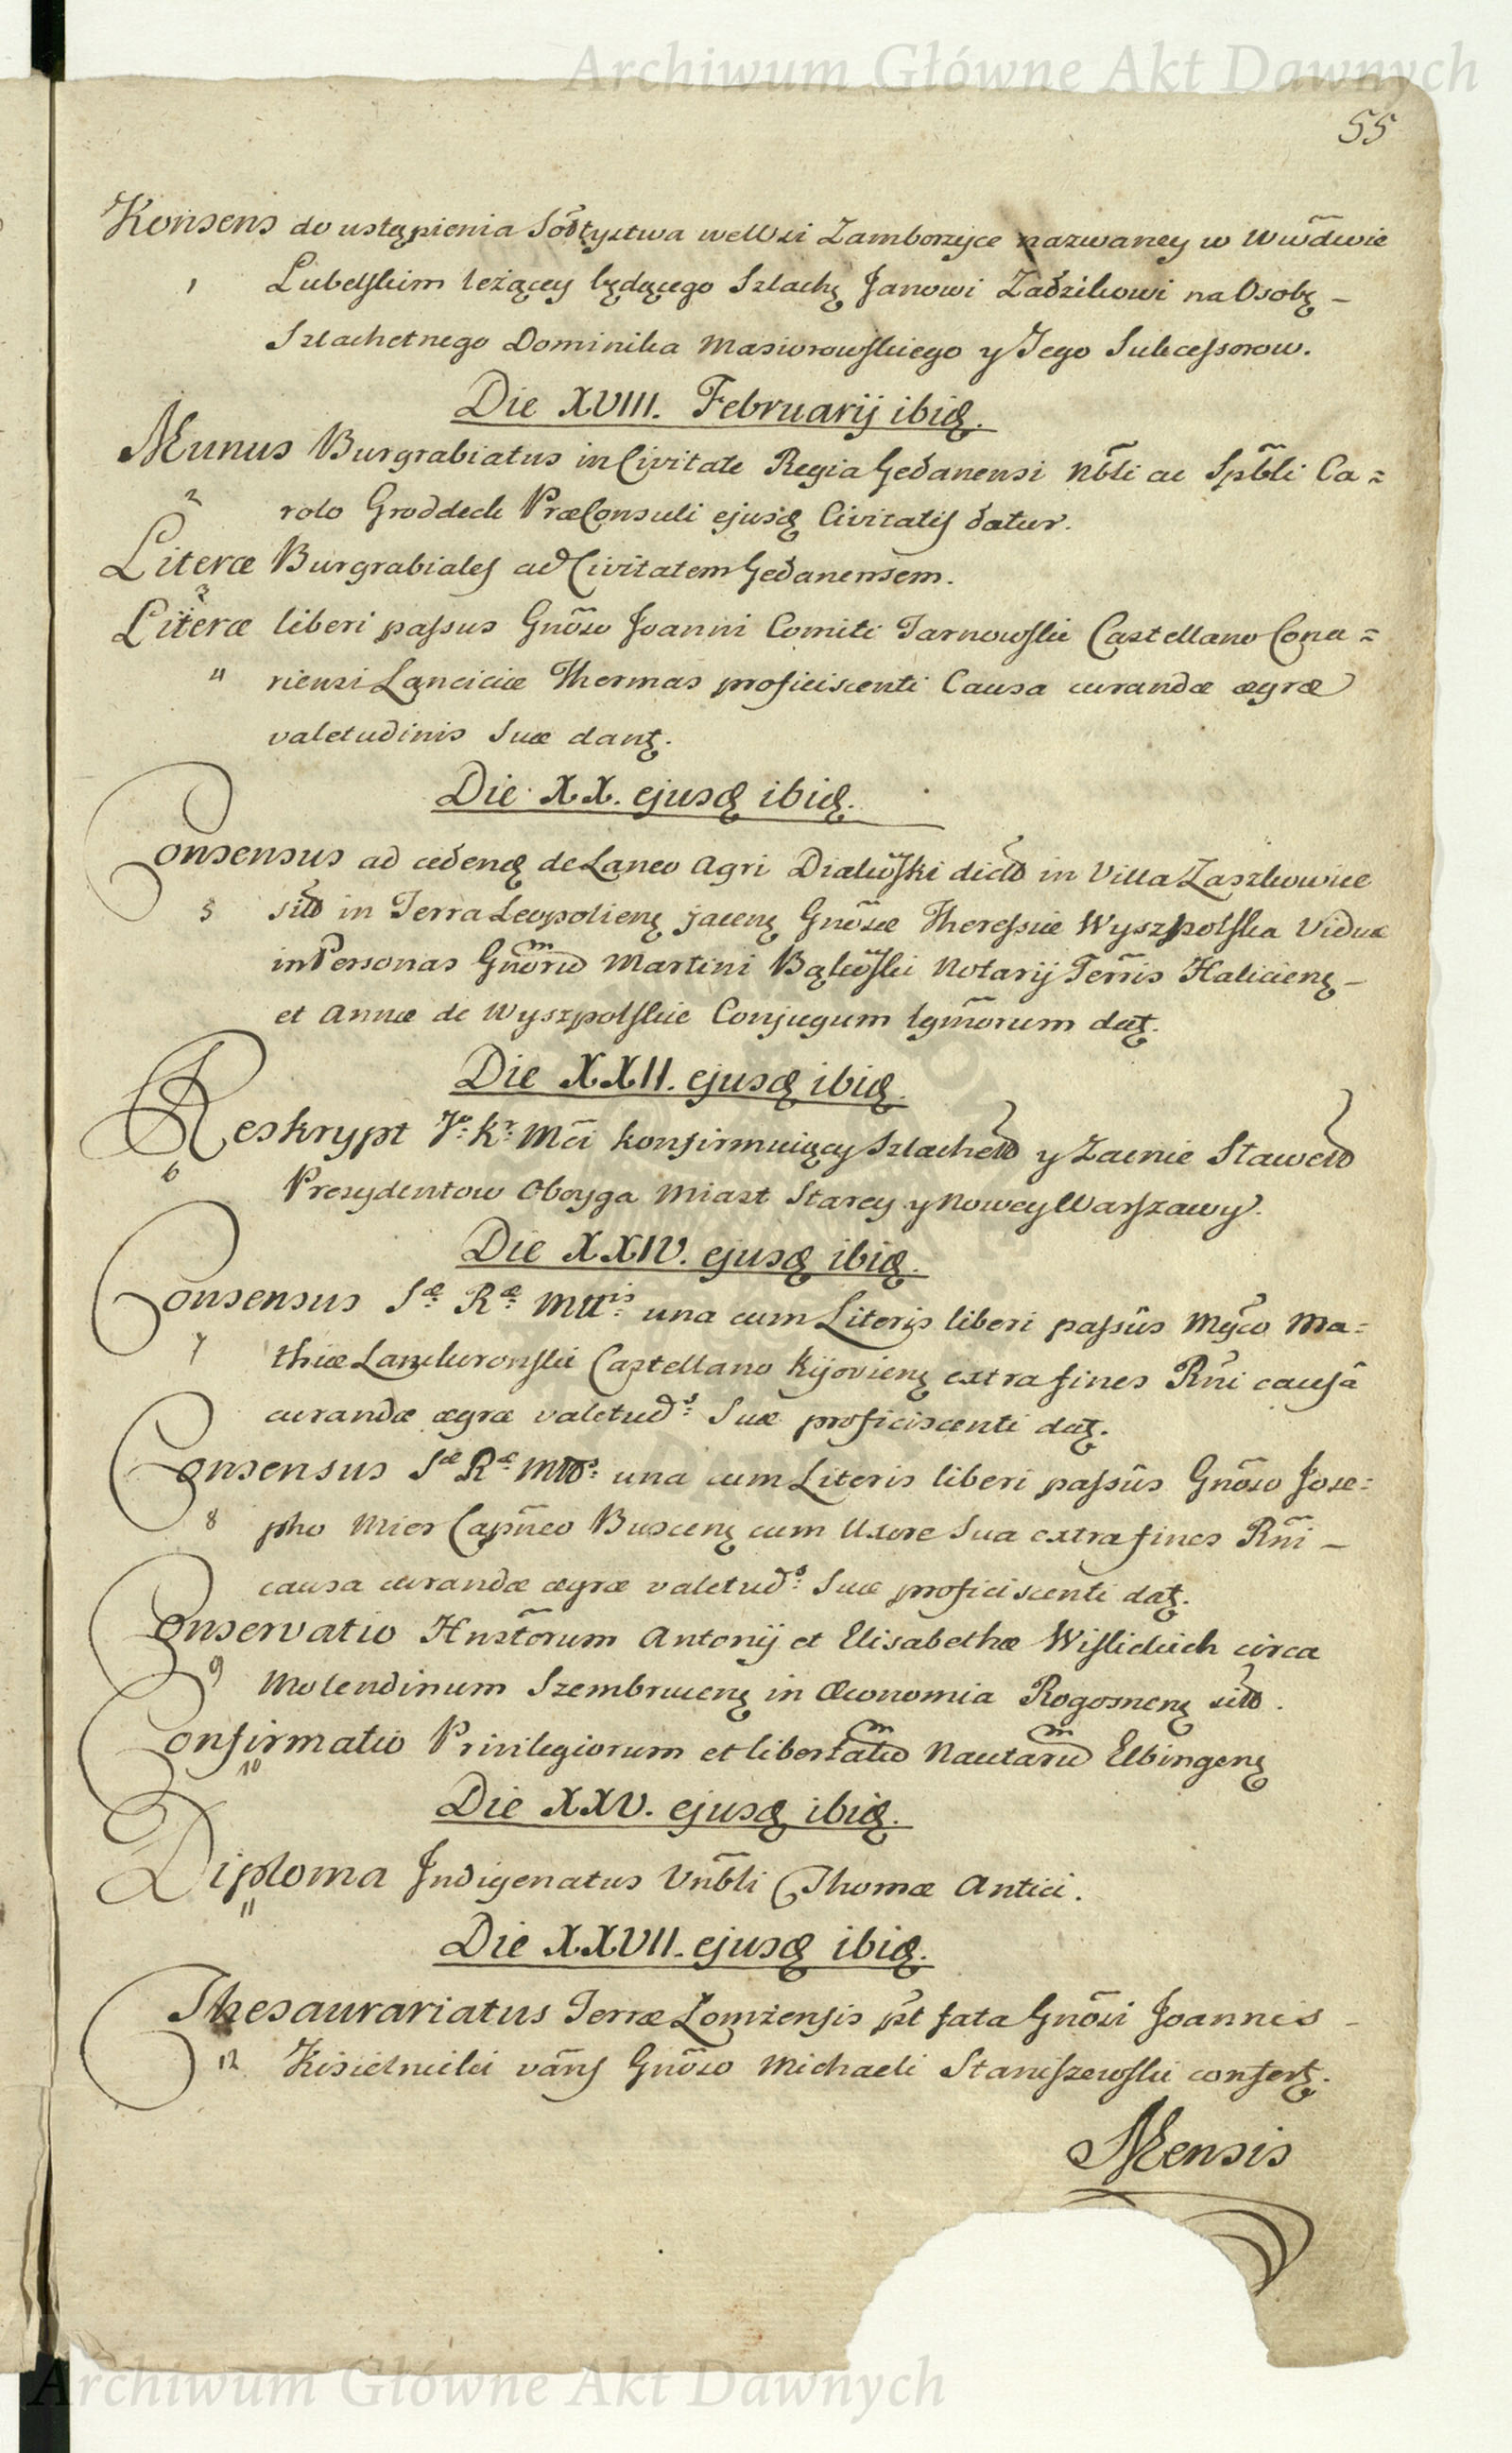 Archiwum Główne Akt Dawnych
55
Konsens do ustąpienia Sołtystwa we Wsi Zamborzyce nazwaney w Wwdwie
1 Lubelskim leżącey będącego Szlachę Janowi Zadzikowi na Osobę –
Szlachetnego Dominika Masiorowskiego y Jego Sukcessorow.
Die XVIII. Februarij ibid.
Munus Burgrabiatus in Civitate Regia Gedanensi Nbli ac Spbli Ca=
2 rolo Groddeck PræConsuli ejusd Civitatis datur.
Literæ Burgrabiales ad Civitatem Gedanensem.
3
Literæ liberi passus Gnoso Joanni Comiti Tarnowski Castellano Cona=
4 riensi Lanciciæ Thermas proficiscenti Causa curandæ ægræ
valetudinis Suæ dant.
Die XX. ejusd ibid.
Consensus ad cedend de Laneo Agri Diakowski dicto in Villa Zaszkowice
5 sito in Terra Leopoliens jacens Gnosæ Theressiæ Wyszpolska Viduæ
in Personas Gnorum Martini Bąkowski Notarij Terris Haliciens –
et Annæ de Wyszpolskie Conjugum lgmorum dat.
Die XXII. ejusd ibid.
Reskrypt Jo: Kr: Mci konfirmuiący Szlachetd y Zacnie Sławetd
6 Prezydentow Oboyga Miast Starey y Nowey Warszawy.
Die XXIV. ejusd ibid.
Consensus Sæ: Ræ: Mttis: una cum Literis liberi passûs Mgco Ma=
7 thiæ Lanckoronski Castellano Kijoviens extra fines Rni causâ
curandæ ægræ valetuds: Suæ proficiscenti dat.
Consensus Sæ Ræ Mtts: una cum Literis liberi passûs Gnoso Jose=
8 pho Mier Capneo Buscens cum Uxore Sua extra fines Rni –
causa curandæ ægræ valetuds: Suæ proficiscenti dat.
Conservatio Hnstorum Antonij et Elisabethæ Wislickich circa
9 Molendinum Szembrucens in Œconomia Rogosnens sito.
Confirmatio Privilegiorum et libertatum Nautarum Elbingens
10
Die XXV. ejusd ibid.
Diploma Indigenatus Vnbli Thomæ Antici.
11
Die XXVII. ejusd ibid.
Thesaurariatus Terræ Lomzensis pst fata Gnosi Joannis –
12 Kisielnicki vans Gnoso Michaeli Staniszewski confert.
Mensis
Archiwum Główne Akt Dawnych